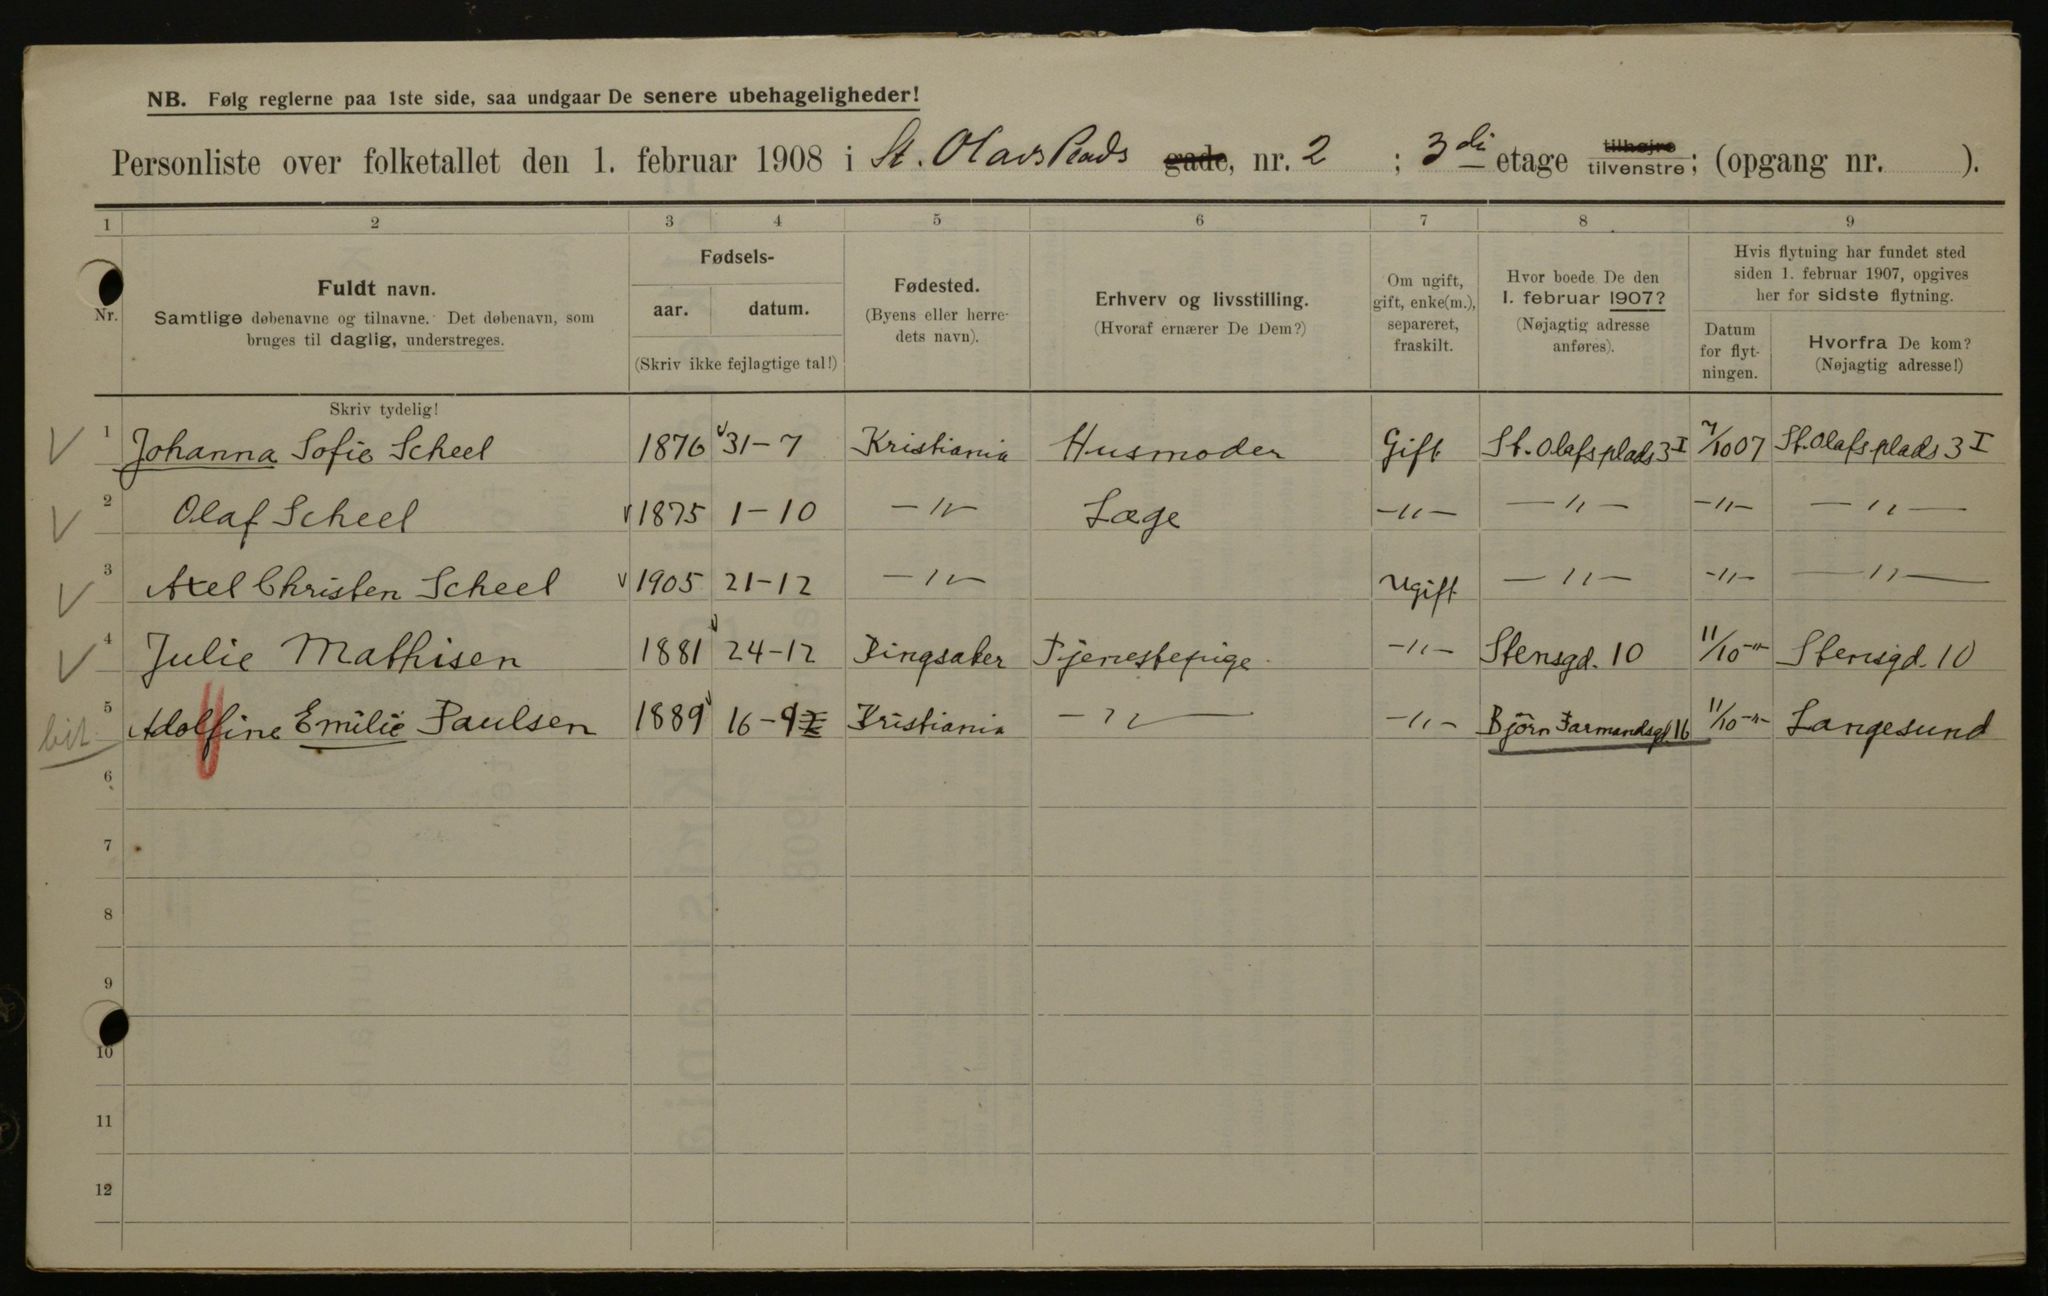 NB. Følg reglerne paa 1ste side, saa undgaar De senere ubehageligheder!
Personliste over folketallet den 1. februar 1908 i St. Olavs Plads gade, nr. 2 ; 3di etage tilhøjre tilvenstre; (opgang nr. ).
1 2 3 4 5 6 7 8 9
Nr.
Fuldt navn.
Samtlige døbenavne og tilnavne. Det døbenavn, som
bruges til daglig, understreges.
Skriv tydelig!
Fødsels-
aar. datum.
(Skriv ikke fejlagtige tal!)
Fødested.
(Byens eller herre-
dets navn).
Erhverv og livsstilling.
(Hvoraf ernærer De Dem?)
Om ugift,
gift, enke(m.),
separeret,
fraskilt.
Hvor boede De den
1. februar 1907?
(Nøjagtig adresse
anføres).
Hvis flytning har fundet sted
siden 1. februar 1907, opgives
her for sidste flytning.
Datum
for flyt-
ningen.
Hvorfra De kom?
(Nøjagtig adresse!)
1 Johanna Sofie Scheel 1876 31-7 Kristiania Husmoder Gift St. Olafsplads 3 I 7/10 07 St. Olafsplads 3 I
2 Olaf Scheel 1875 1-10 -"- Læge -"- -"- -"- -"-
3 Axel Christen Scheel 1905 21-12 -"- Ugift -"- -"- -"-
4 Julie Mathisen 1881 24-12 Ringsaker Tjenestepige -"- Stensgd. 10 11/10 -"- Stensgd. 10
5 Adolfine Emilie Paulsen 1889 16-9 Kristiania -"- -"- Björn Farmandsgd 16 11/10 -"- Langesund
6
7
8
9
10
11
12